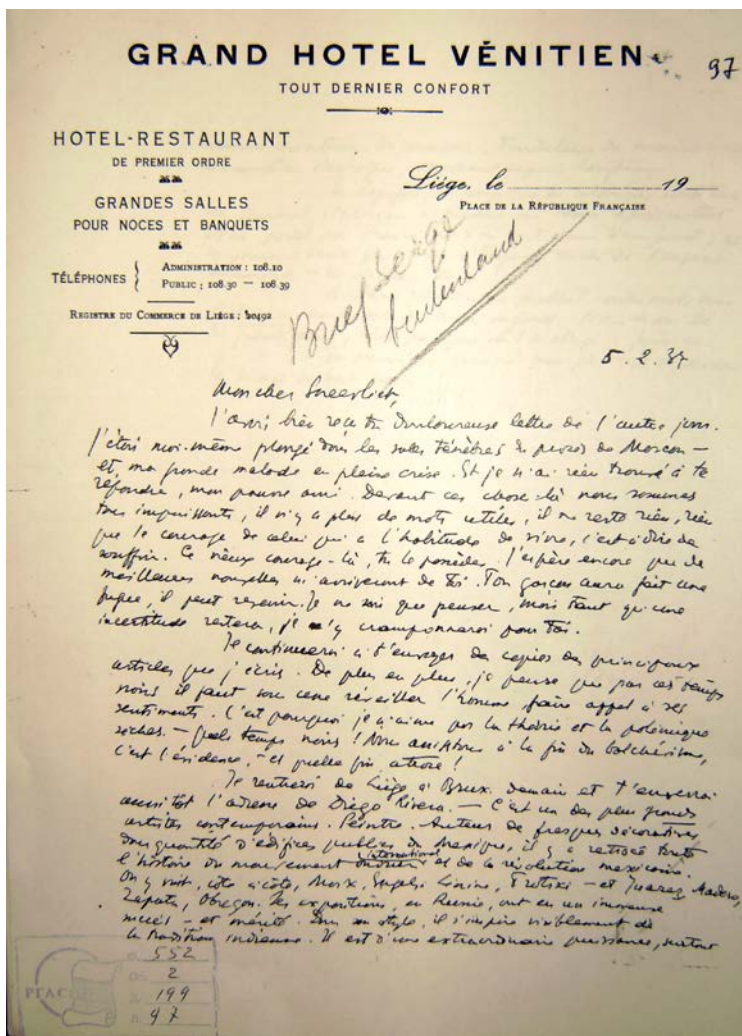 GRAND HOTEL VÉNITIEN
97
TOUT DERNIER CONFORT
HOTEL-RESTAURANT
DE PREMIER ORDRE
GRANDES SALLES
POUR NOCES ET BANQUETS
TÉLÉPHONES { ADMINISTRATION : 108.10
PUBLIC ; 108.30 — 108.39
REGISTRE DU COMMERCE DE LIÉGE ; 20492
Liége, le 19
PLACE DE LA RÉPUBLIQUE FRANÇAISE
Brief Serge
5.2.37
Mon cher Sneevliet,
J'ai bien reçu ta douloureuse lettre de l'autre jour.
J'étais moi-même plongé dans les sales ténèbres du procès de Moscou —
et ma grande malade en pleine crise. Et je n'ai rien trouvé à te
répondre, mon pauvre ami. Devant ces choses-là nous sommes
tous impuissants, il n'y a plus de mots utiles, il ne reste rien, rien
que le courage de celui qui a l'habitude de vivre, c'est à dire de
souffrir. Ce vieux courage-là, tu le possèdes. J'espère encore que de
meilleures nouvelles m'arriveront de toi. Ton garçon aura fait une
fugue, il peut revenir. Je ne sais que penser, mais tant qu'une
incertitude restera, je m'y cramponnerai pour toi.
Je continuerai à t'envoyer des copies des principaux
articles que j'écris. De plus en plus, je pense que par ces temps
noirs il faut sans cesse réveiller l'homme, faire appel à ses
sentiments. C'est pourquoi je n'aime pas la théorie et la polémique
sèches. — Quels temps noirs ! Nous assistons à la fin du bolchévisme,
c'est l'évidence, — et quelle fin atroce !
Je rentrerai de Liège à Brux. demain et t'enverrai
aussitôt l'adresse de Diégo Rivera. — C'est un des plus grands
artistes contemporains. Peintre. Auteur de fresques décoratives
dans quantité d'édifices publics du Mexique, il y a retracé toute
l'histoire du mouvement ouvrier international et de la révolution mexicaine.
On y voit, côte à côte, Marx, Engels, Lénine, Trotski — et Juarez, Madero,
Zapata, Obregon. Ses expositions, en Russie, ont eu un immense
succès — et mérité. Dans son style, il s'inspire visiblement de
la tradition indienne. Il est d'une extraordinaire puissance, surtout
552
2
199
97